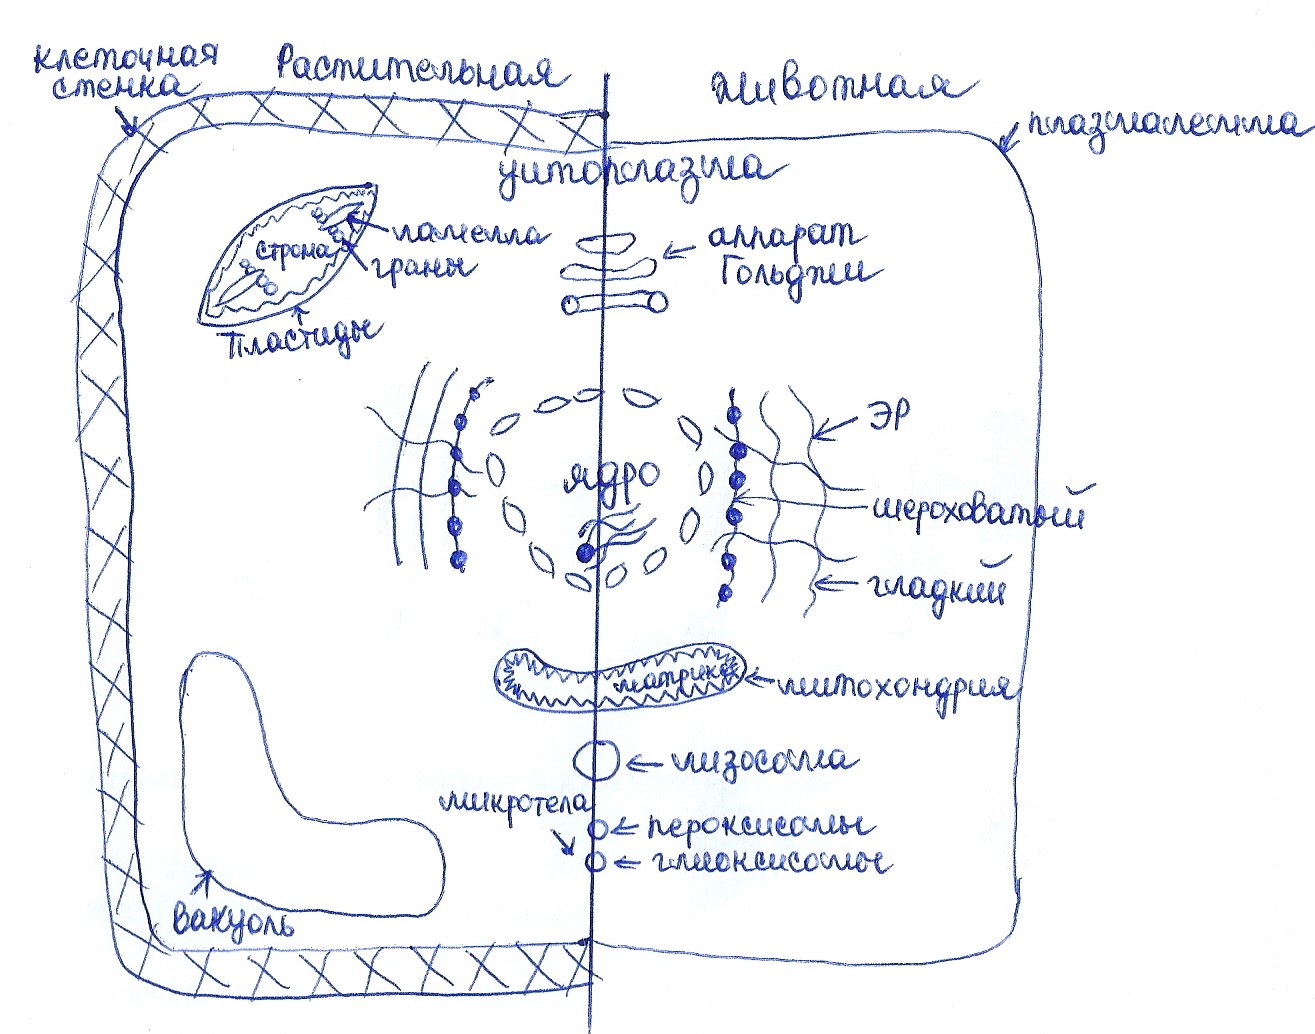 клеточная
стенка
Растительная
Животная
плазмалемма
цитоплазма
ламелла
граны
строма
Пластиды
аппарат
Гольджи
ЭР
ядро
шероховатый
гладкий
матрикс
митохондрия
лизосома
микротела
пероксисомы
глиоксисомы
Вакуоль